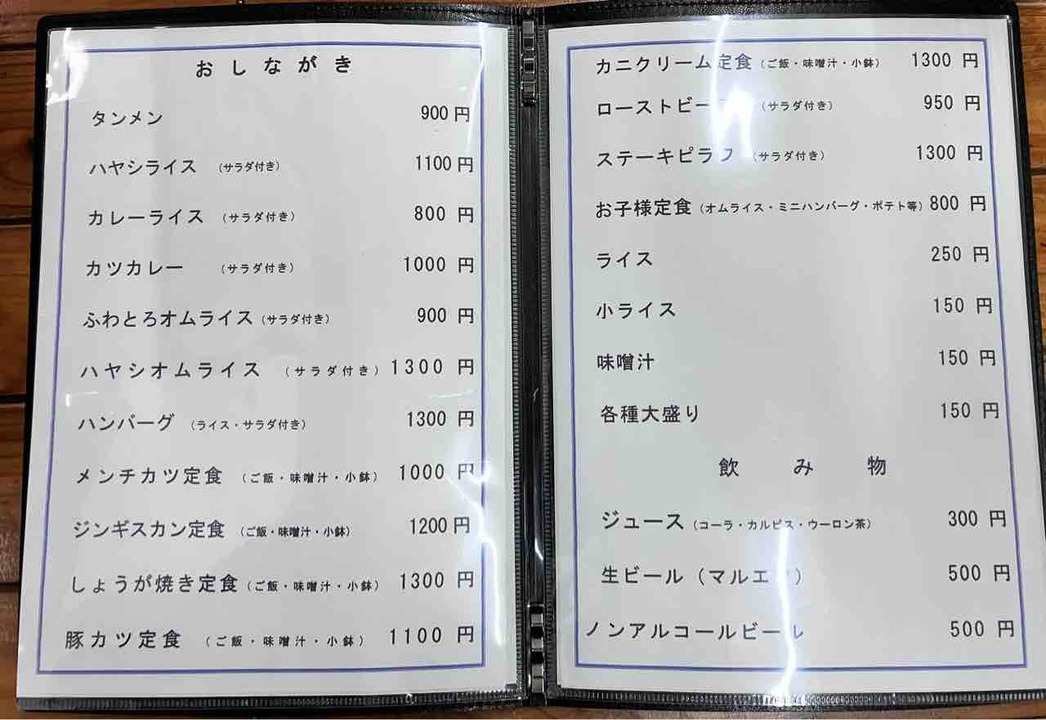 おしながき
タンメン 900円
ハヤシライス (サラダ付き) 1100円
カレーライス (サラダ付き) 800円
カツカレー (サラダ付き) 1000円
ふわとろオムライス (サラダ付き) 900円
ハヤシオムライス (サラダ付き) 1300円
ハンバーグ (ライス・サラダ付き) 1300円
メンチカツ定食 (ご飯・味噌汁・小鉢) 1000円
ジンギスカン定食 (ご飯・味噌汁・小鉢) 1200円
しょうが焼き定食 (ご飯・味噌汁・小鉢) 1300円
豚カツ定食 (ご飯・味噌汁・小鉢) 1100円
カニクリーム定食 (ご飯・味噌汁・小鉢) 1300円
(サラダ付き) 950円
ステーキピラフ (サラダ付き) 1300円
お子様定食 (オムライス・ミニハンバーグ・ポテト等) 800円
ライス 250円
小ライス 150円
味噌汁 150円
各種大盛り 150円
飲み物
ジュース (コーラ・カルピス・ウーロン茶) 300円
生ビール 500円
ノンアルコールビール 500円